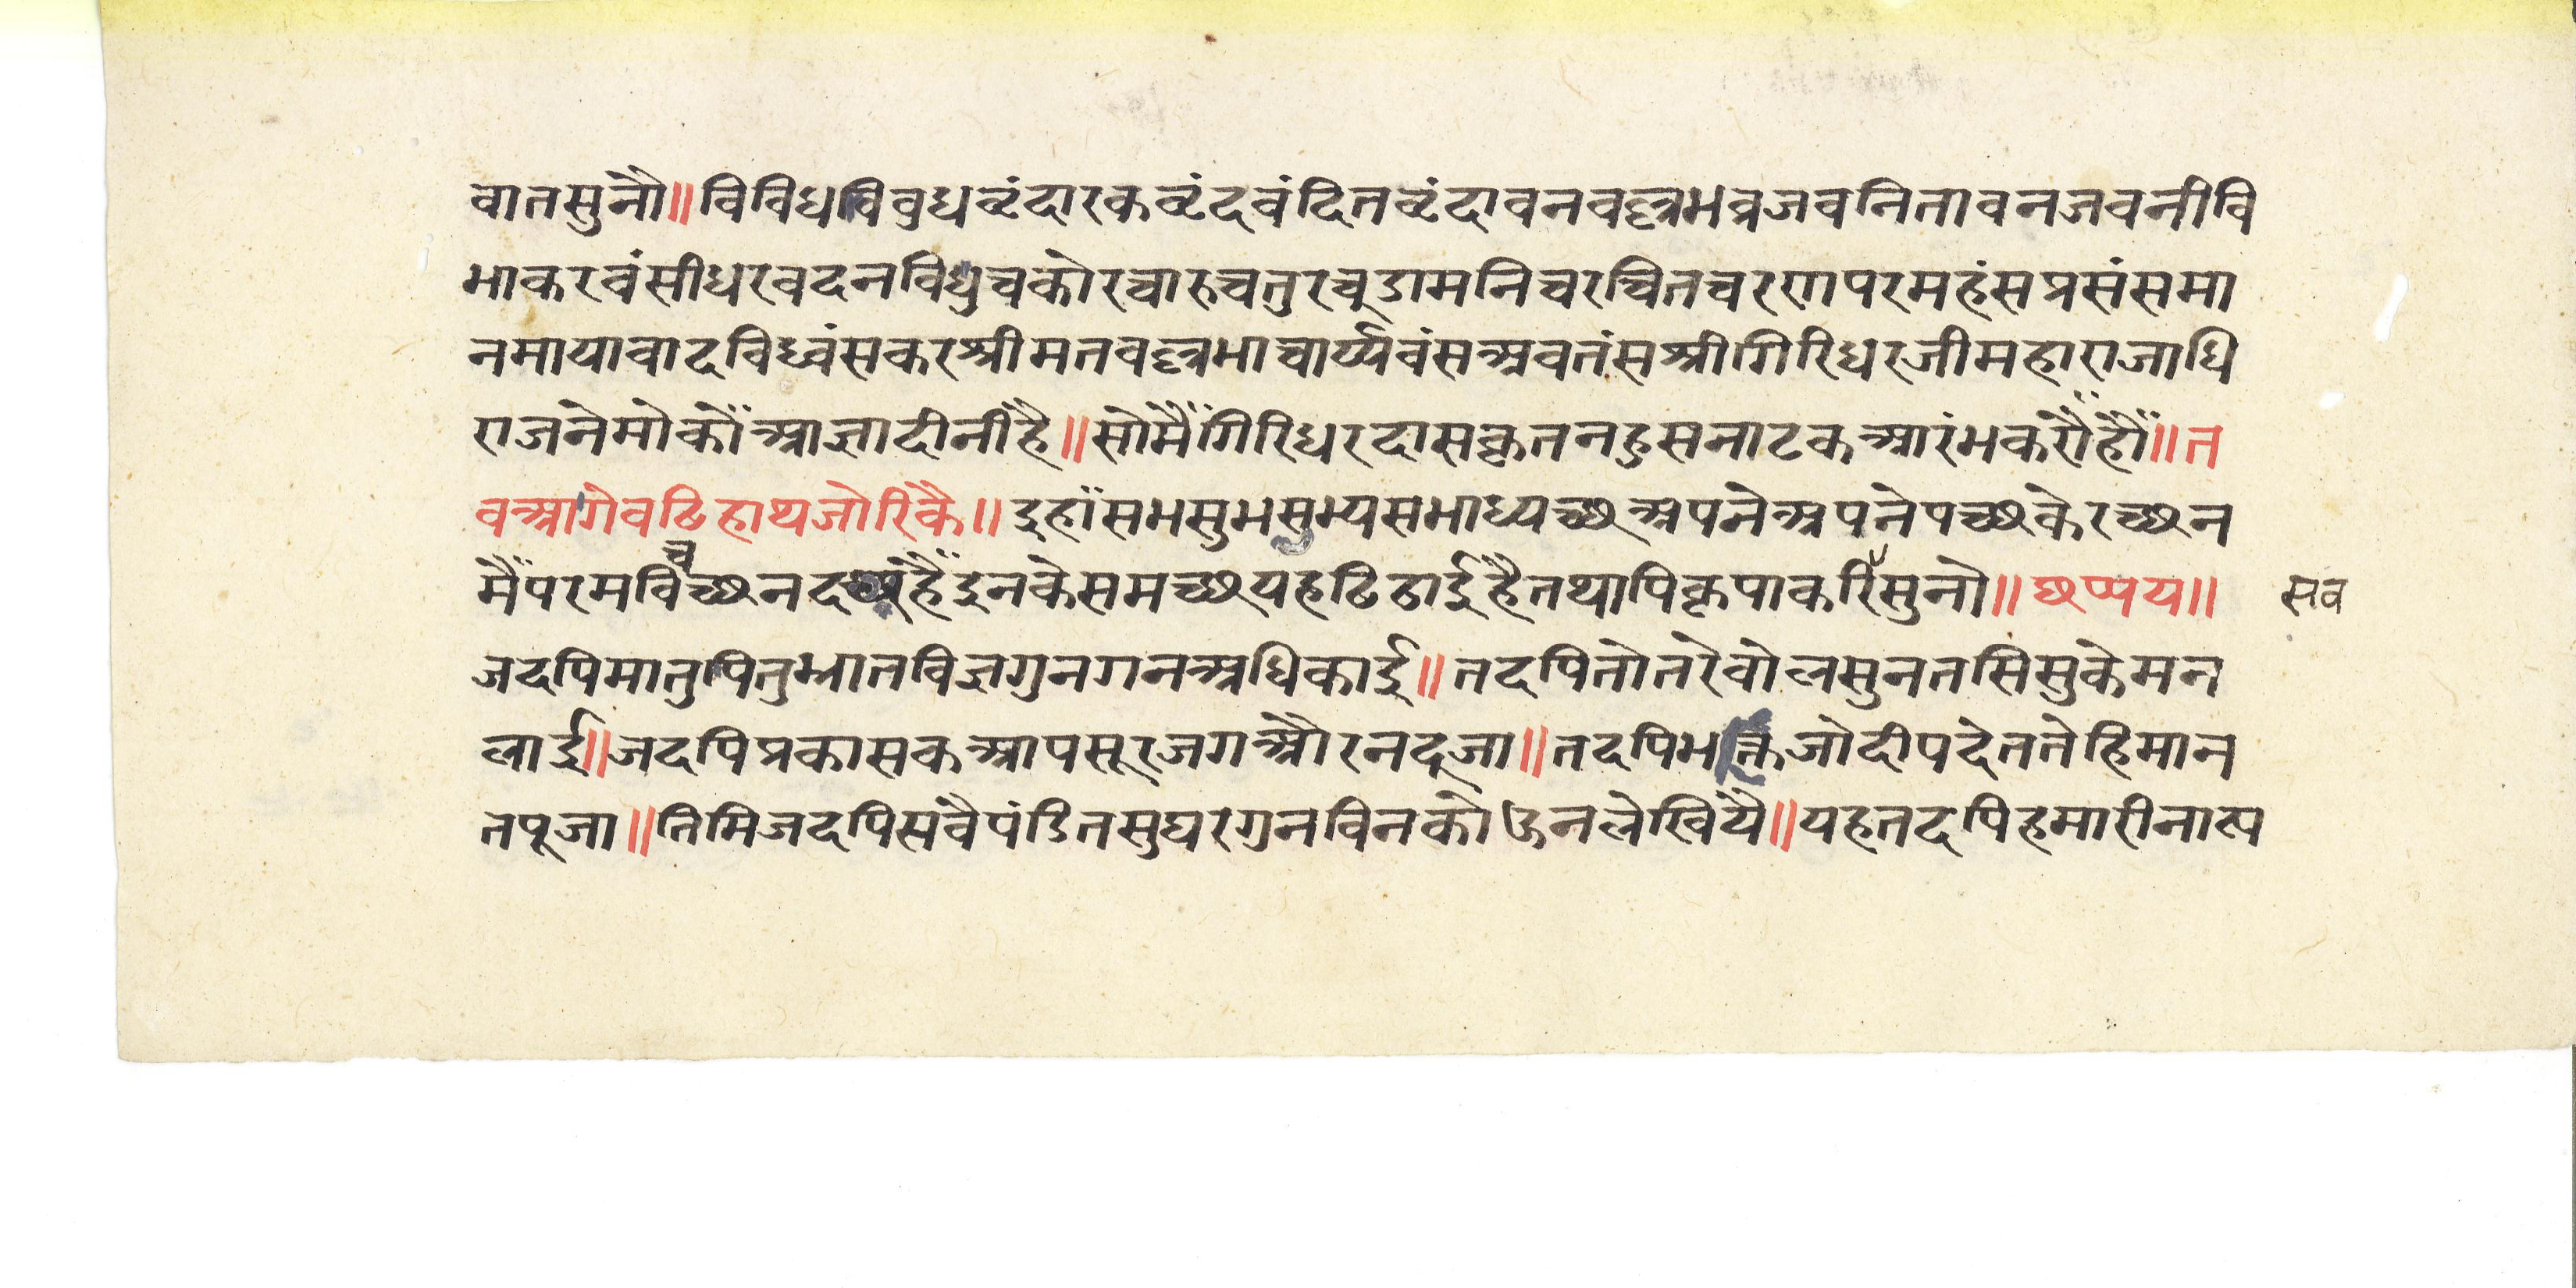 वातसुनौ॥विविधविवुधवृंदारकवृंदवंदितवृंदावनवल्लभव्रजवनितावनजवनीवि
भाकरवंसीधरवदनविधुचकोरचारुचतुरचूडामनिचरचितचरणपरमहंसप्रसंसमा
नमायावादविध्वंसकरश्रीमतवल्लभाचार्य्यवंसअवतंसश्रीगिरिधरजीमहाराजाधि
राजनेमोकोंआज्ञादीनीहै॥सोमैंगिरिधरदासकृतनहुसनाटकआरंभकरौंहौं॥त
वआगेवढिहाथजोरिकै॥इहांसभसुभसुभ्यसभाध्यच्छअपनेअपनेपच्छकेरच्छन
मैंपरमविचच्छनदच्छहैंइनकेसमच्छयहढिठाईहैतथापिकृपाकरिसुनो॥छप्पय॥
सव
जदपिमातुपितुभ्रातविज्ञगुनगनअधिकाई॥तदपितोतरेवोलसुनतसिसुकेमन
लाई॥जदपिप्रकासकआपसूरजगऔरनदूजा॥तदपिभक्तजोदीपदेततेहिमान
तपूजा॥तिमिजदपिसवैपंडितसुघरगुनविनकोऊनलेखियै॥यहतदपिहमारीनाट्य